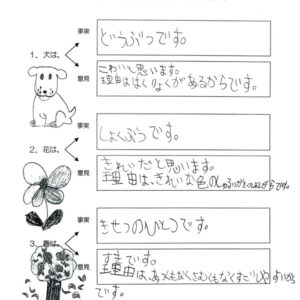 事実
どうぶつです。
1. 犬は、
意見
こわいと思います。
理由ははくりょくがあるからです。
事実
しょくぶつです。
2. 花は、
意見
きれいだと思います。
理由は、きれいな色のしゅるいが
からです。
事実
きせつのひとつです。
3. 春は、
意見
すきです。
理由は、あつくもなくさむくもなくすごしやすいから
です。